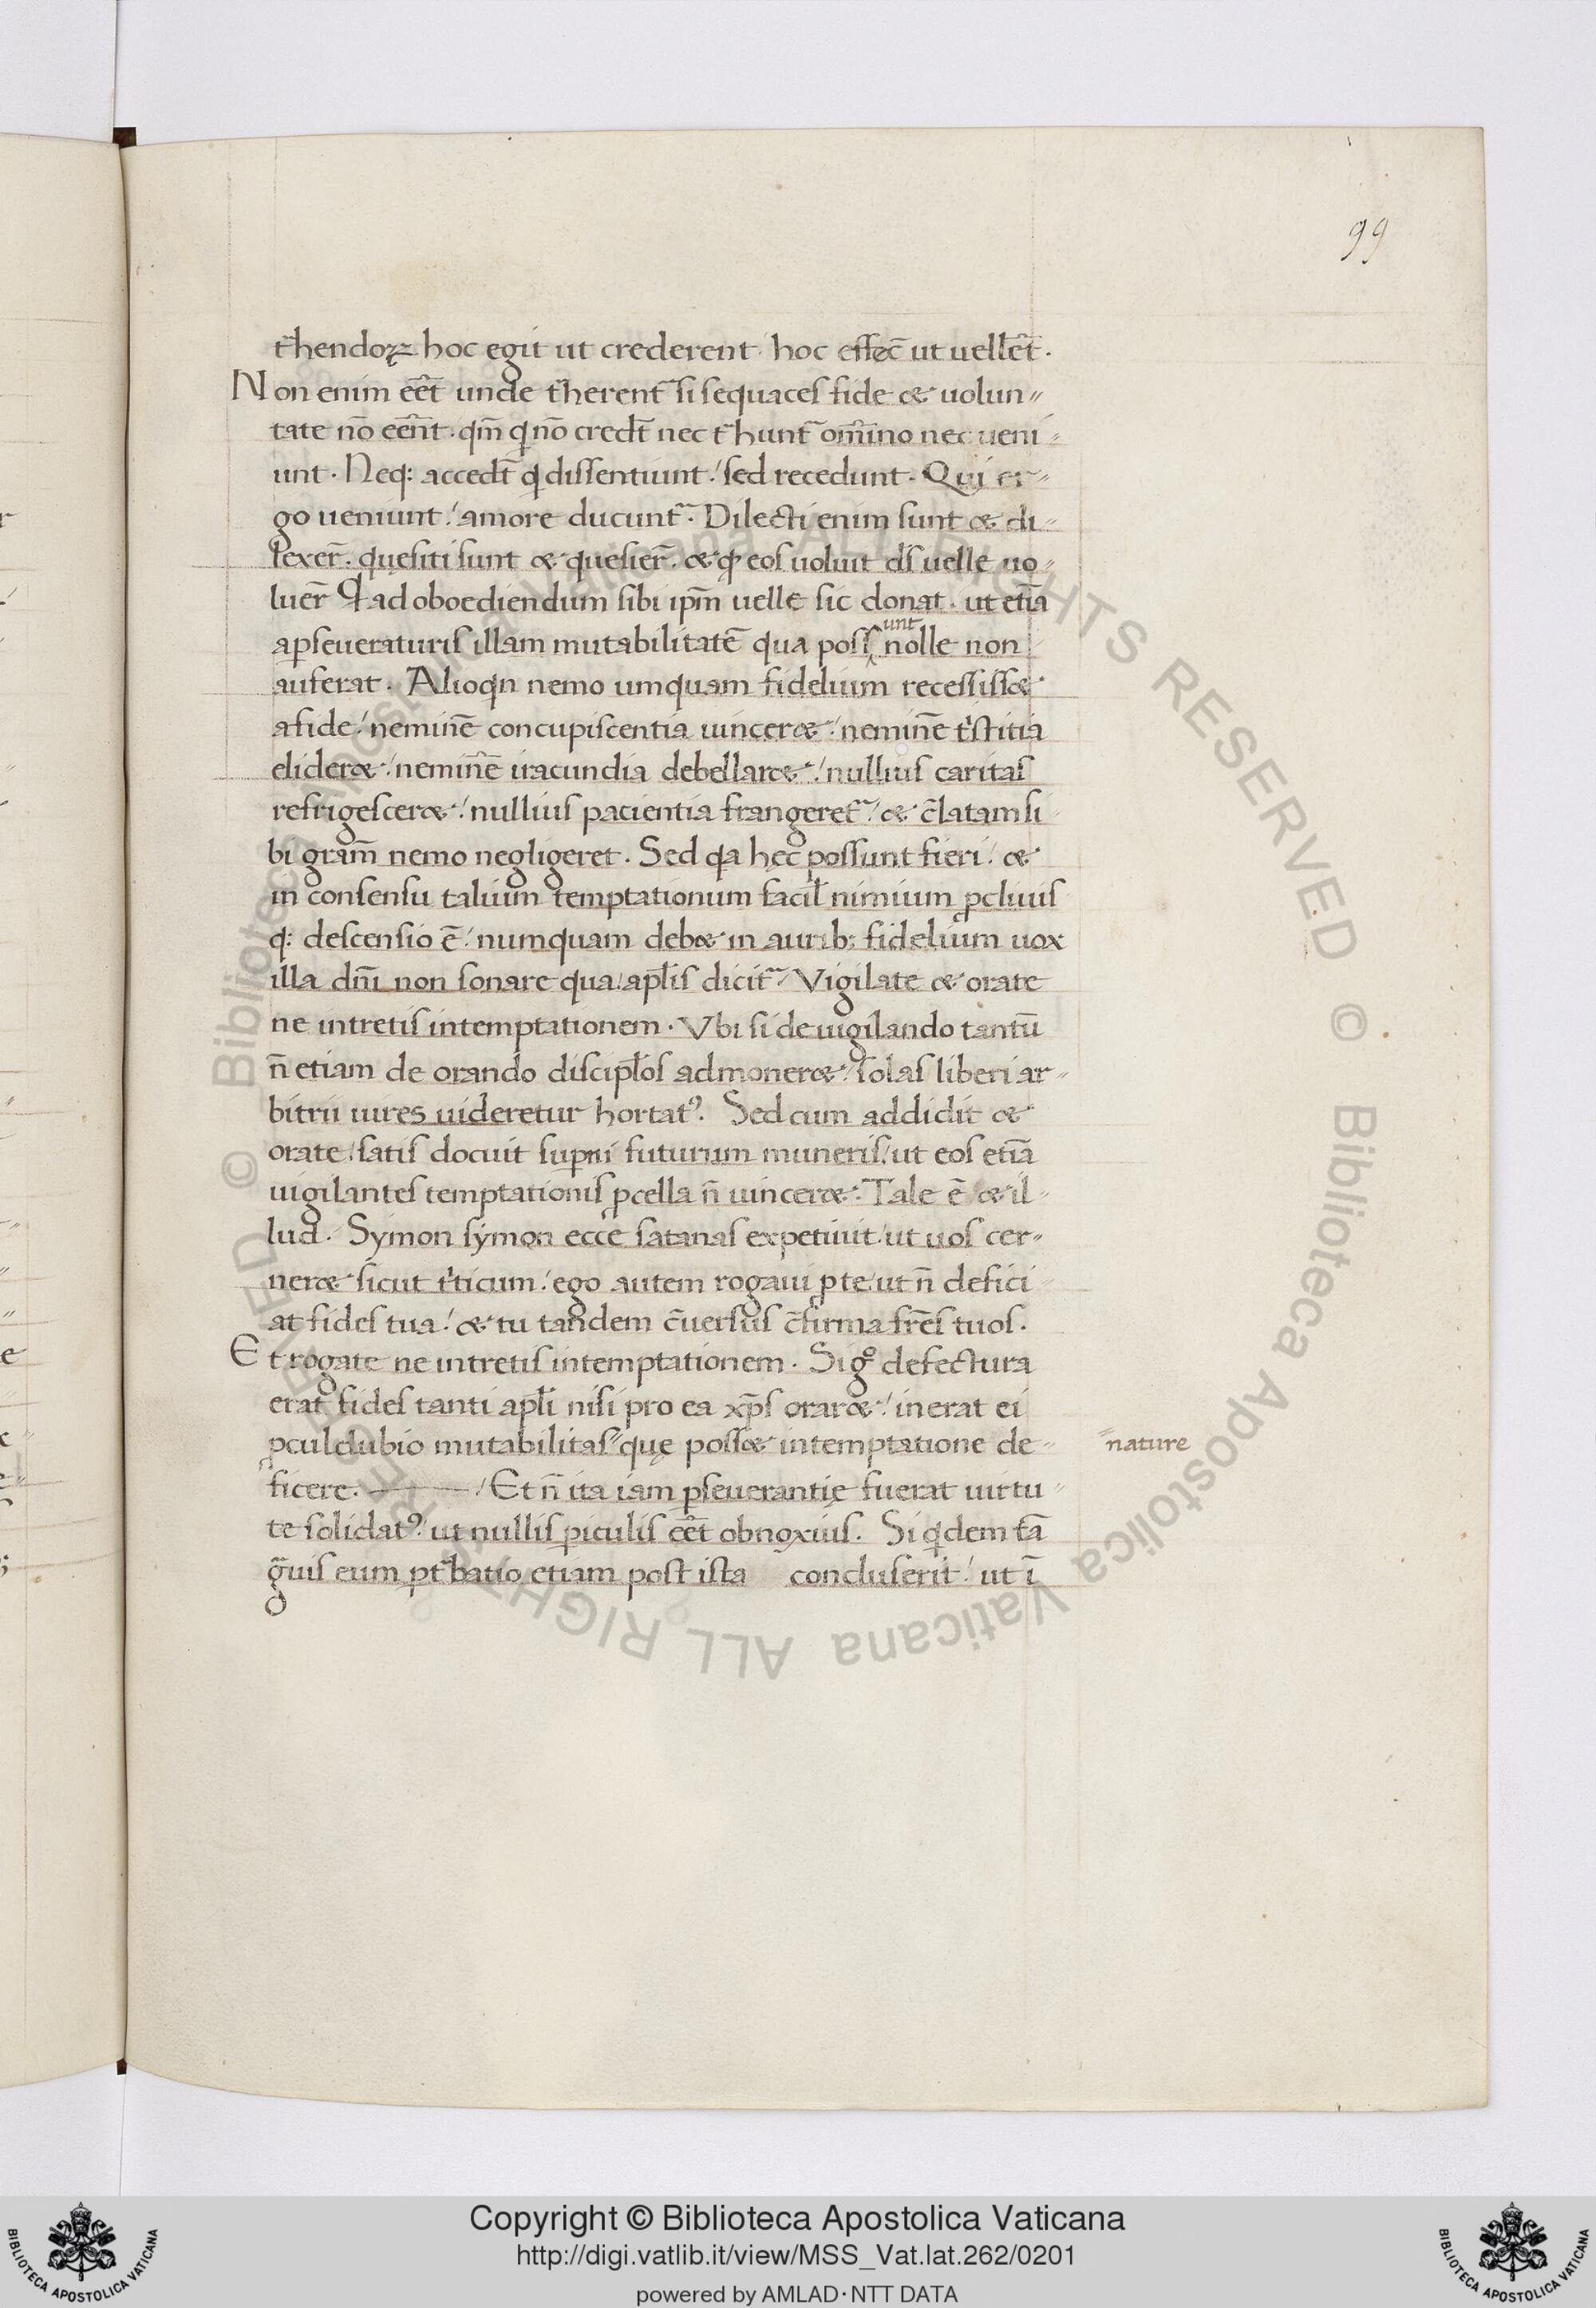 99
t͛hendoꝝ hoc egit ut crederent hoc effec̄ ut uellēt.
Non enim eēt unde t͛herent᷑ si sequaces fide & uolun〃
tate nō eēnt. qm̄ q̇ nō credt̄ nec t͛hunt᷑ om̄ino nec ueni〃
unt. Neq: accedt̄ q̇ dissentiunt / sed recedunt. Qui er〃
go ueniunt / amore ducunt᷑. Dilecti enim sunt & di〃
lexer̄. quęsiti sunt & quesier̄. & qđ eos uoluit ds̄ uelle uo〃
luer̄ Qđ ad oboediendum sibi ipm̄ uelle sic donat. ut etiā
a ꝑseueraturis illam mutabilitatē qua poss^unt nolle non
auferat. Alioqn nemo umquam fidelium recessiss&
a fide / neminē concupiscentia uincer& / neminē tͥstitia
elider& / neminē iracundia debellar& / nullius caritas
refrigescer& / nullius pacientia frangeret᷑ / & c̄latam si
bi gram̄ nemo negligeret. Sed qa hęc possunt fieri / &
in consensu talium temptationum facil̄ nimium ꝓcliuis
q: descensio ē / numquam deb& in aurib: fidelium uox
illa dn̄i non sonare qua apl̄is dicit᷑ / Vigilate & orate
ne intretis intemptationem. Vbi si de uigilando tantū
n̄ etiam de orando discipl̄os admoner& / solas liberi ar〃
bitrii uires uideretur hortatꝰ. Sed cum addidit &
orate / satis docuit suꝑni futurum muneris / ut eos etiā
uigilantes temptationis ꝓcella n̄ uincer&. Tale ē & il〃
lud. Symon symon ecce satanas expetiuit / ut uos cer〃
ner& sicut tͥticum / ego autem rogaui ꝓ te / ut n̄ defici〃
at fides tua / & tu tandem c̄uersus c̄firma fr̄es tuos.
Et rogate ne intretis intemptationem. Si gͦ defectura
erat fides tanti apl̄i nisi pro ea xp̄s orar& / inerat ei
ꝓculdubio mutabilitas〃 quę poss& intemptatione de〃
〃nature
ficere. / Et n̄ ita iam ꝑseuerantię fuerat uirtu〃
te solidatꝰ / ut nullis ꝑiculis eēt obnoxius. Si qͥdem tā
g͛uis eum ꝑt᷑batio etiam post ista concluserit / ut ī
Copyright © Biblioteca Apostolica Vaticana
http://digi.vatlib.it/view/MSS_Vat.lat.262/0201
powered by AMLAD·NTT DATA
BIBLIOTECA APOSTOLICA VATICANA
BIBLIOTECA APOSTOLICA VATICANA
© Biblioteca Apostolica Vaticana ALL RIGHTS RESERVED © Biblioteca Apostolica Vaticana ALL RIGHTS RESERVED